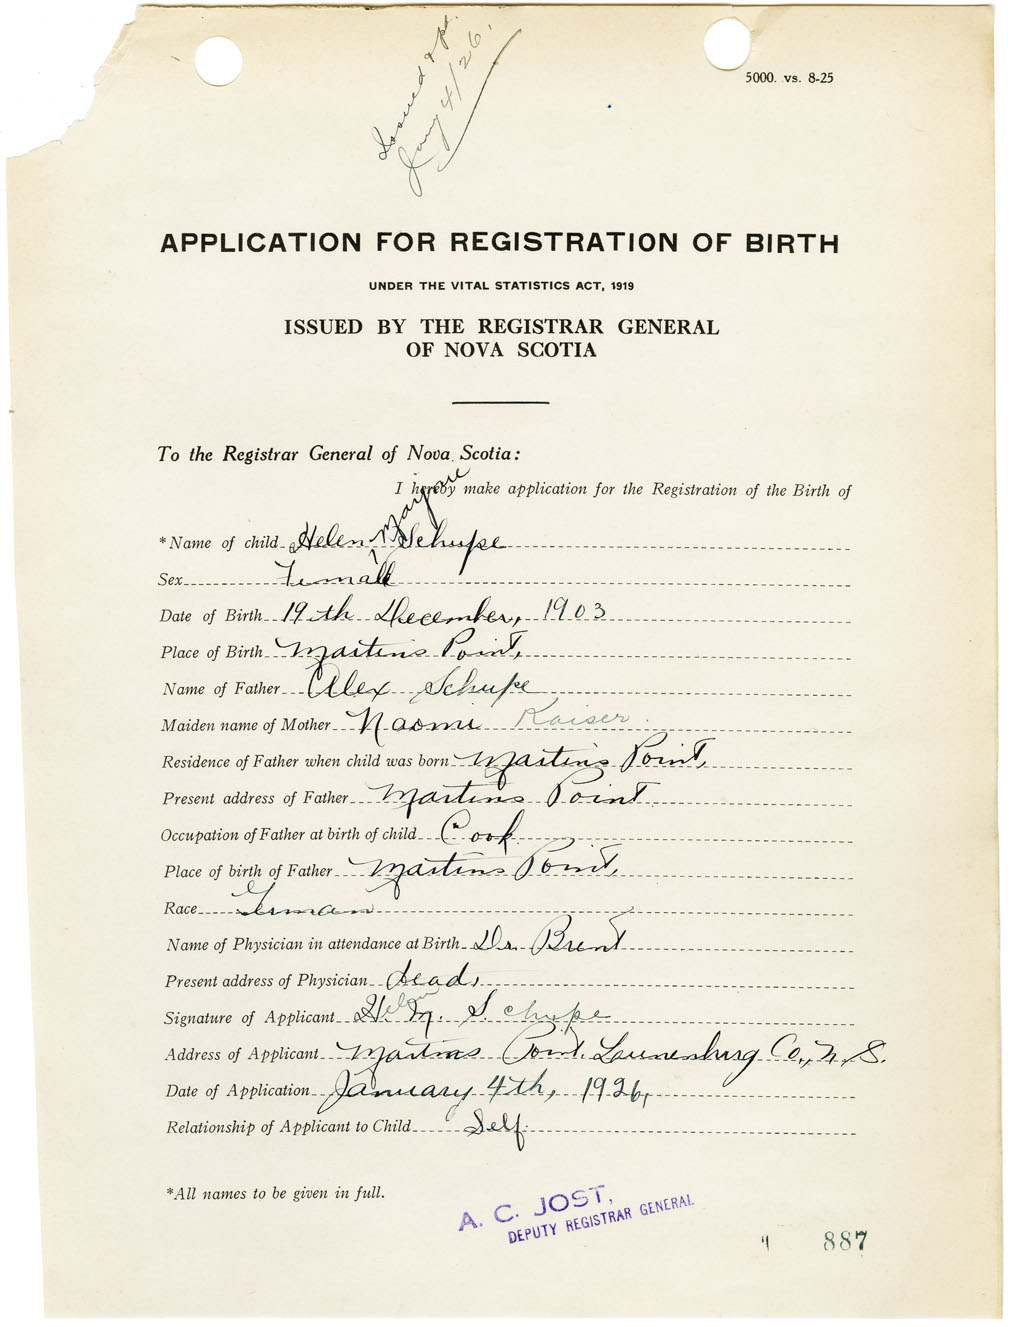 Issued & pd.
Jany 4/26.
5000. vs. 8-25
APPLICATION FOR REGISTRATION OF BIRTH
UNDER THE VITAL STATISTICS ACT, 1919
ISSUED BY THE REGISTRAR GENERAL
OF NOVA SCOTIA
To the Registrar General of Nova Scotia:
I hereby make application for the Registration of the Birth of
*Name of child Helen Marjorie Schupe
Sex Female
Date of Birth 19th December, 1903
Place of Birth Martins Point,
Name of Father Alex Schupe
Maiden name of Mother Naomi Kaiser.
Residence of Father when child was born Martins Point,
Present address of Father Martins Point
Occupation of Father at birth of child Cook
Place of birth of Father Martins Point,
Race German
Name of Physician in attendance at Birth Dr. Brent
Present address of Physician dead,
Signature of Applicant Helen M. Schupe
Address of Applicant Martins Point. Lunenburg Co., N.S.
Date of Application January 4th, 1926,
Relationship of Applicant to Child Self
*All names to be given in full.
A. C. JOST,
DEPUTY REGISTRAR GENERAL
887